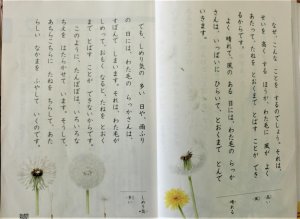 なぜ、こんな ことを するのでしょう。それは、
せいを 高く する ほうが、わた毛に 風が よく
あたって、たねを とおくまで とばす ことが でき
るからです。
よく 晴れて、風の ある 日には、わた毛の らっか
さんは、いっぱいに ひらいて、とおくまで とんで
いきます。
でも、しめり気の 多い 日や、雨ふり
の 日には、わた毛の らっかさんは、
すぼんで しまいます。それは、わた毛が
しめって、おもく なると、たねを とおく
まで とばす ことが できないからです。
このように、たんぽぽは、いろいろな
ちえを はたらかせて います。そうして、
あちらこちらに たねを ちらして、あた
らしい なかまを ふやして いくのです。